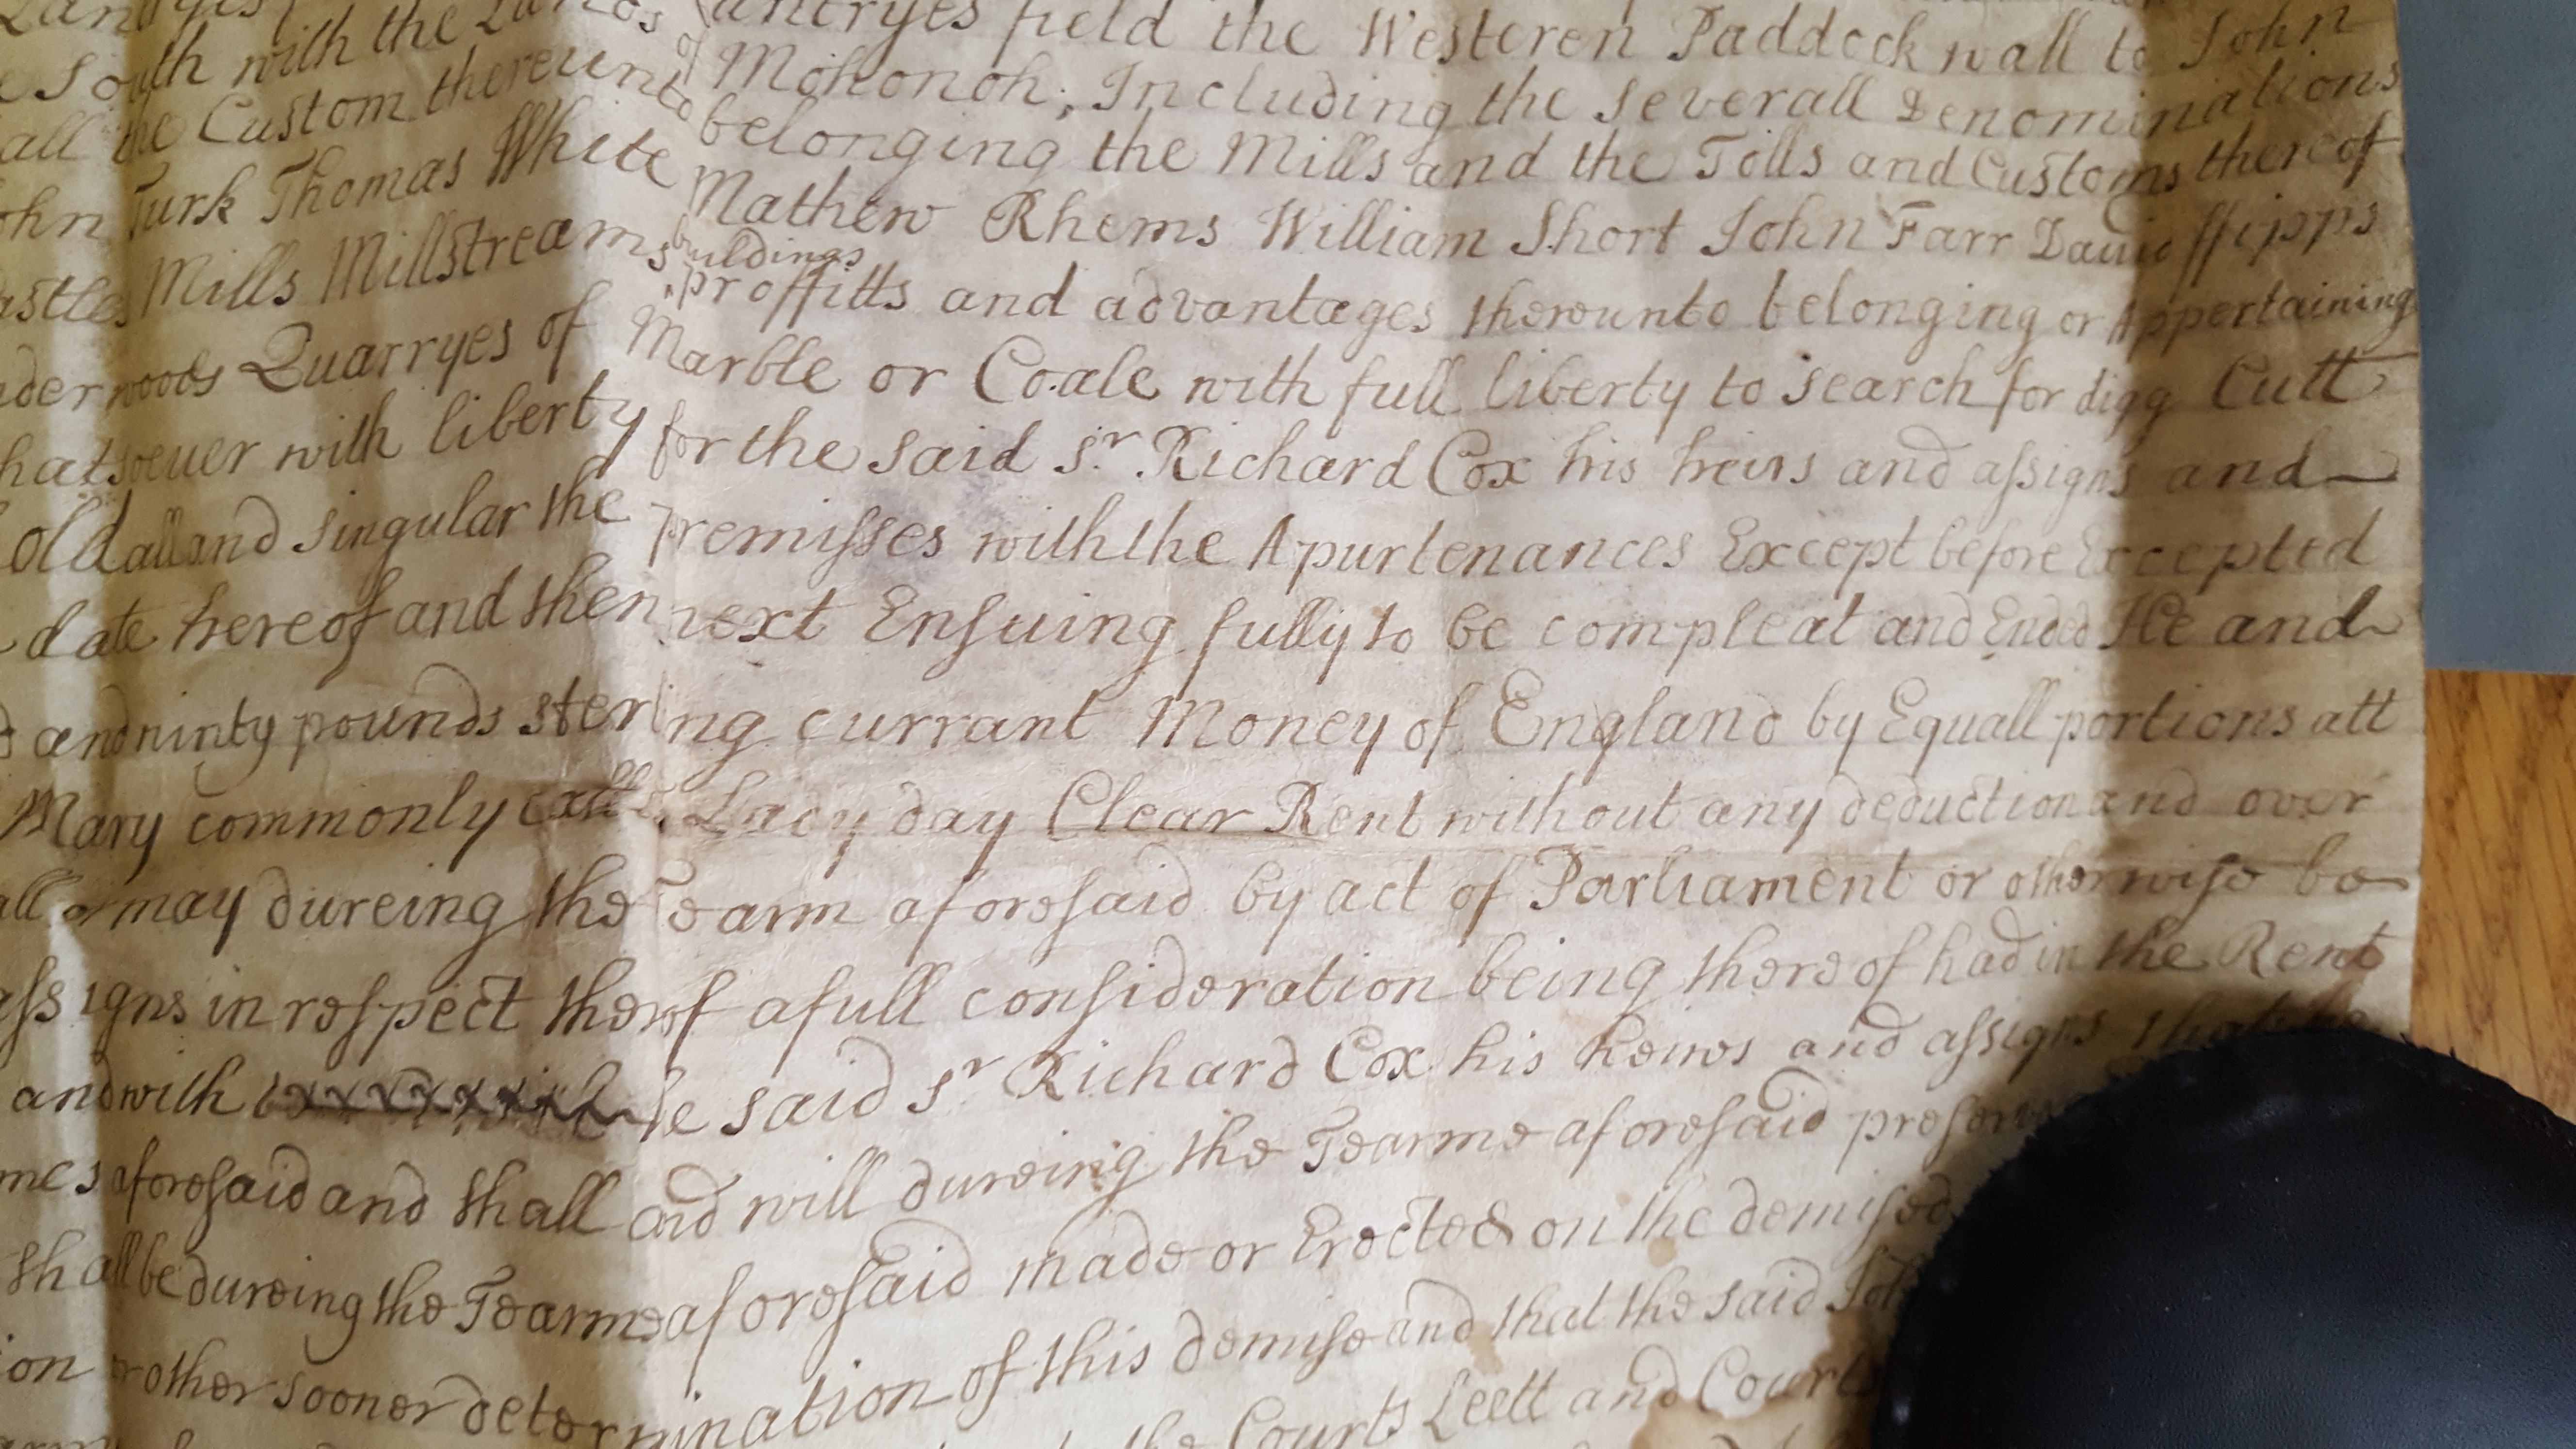 field the Westeren Paddock wall to John
South with the Lands of Mohonoh, Including the severall Denominations
all the Custom thereunto belonging the Mills and the Tolls and Customs thereof
Turk Thomas White Mathew Rhems William Short John Farr David ffipps
buildings
Mills Millstreams proffitts and advantages thereunto belonging or Appertaining
Quarryes of Marble or Coale with full liberty to search for digg Cutt
with liberty for the said Sr. Richard Cox his heirs and assigns and
all and singular the premisses with the Apurtenances Except before Excepted
date hereof and then next Ensuing fully to be compleat and Ended He and
and ninty pounds sterling currant Money of England by Equall portions att
Mary commonly Lacy day Clear Rent without any deduction and over
or may dureing the Tearm aforesaid by act of Parliament or otherwise be
assigns in respect therof a full consideration being thereof had in the Rent
and with said Sr Richard Cox his heires and assigns that he
aforesaid and shall and will dureing the Tearme aforesaid
shall be dureing the Tearme aforesaid made or Erected on the demised
or other sooner determination of this demise and that the said
the Courts Leett and Court